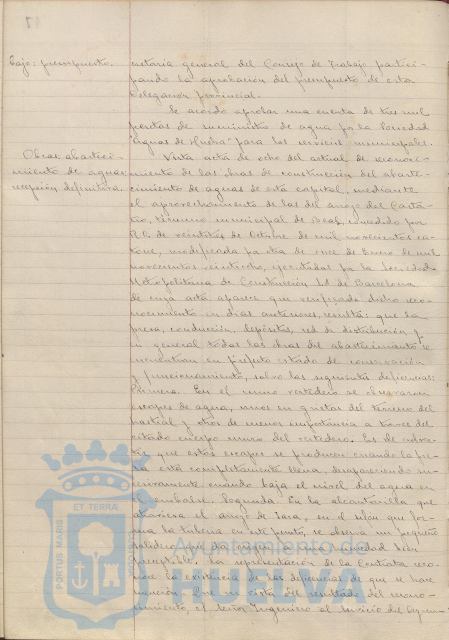 bajo: presupuesto.
cretaría general del Consejo de Trabajo partici-
pando la aprobación del presupuesto de esta
Delegación provincial.
Se acordó aprobar una cuenta de tres mil
pesetas de suministro de agua por la Sociedad
"Aguas de Huelva" para los servicios municipales.
Obras abasteci-
miento de aguas
recepción definitiva.
Vista acta de ocho del actual de reconoci-
miento de las obras de construcción del abaste-
cimiento de aguas de esta capital, mediante
el aprovechamiento de las del arroyo del Carta-
ño, término municipal de Beas, concedido por
R.O. de veintitrés de Octubre de mil novecientos ca-
torce, modificada por otra de once de Enero de mil
novecientos veintiocho, ejecutadas por la Sociedad
Metropolitana de Construcción S.A. de Barcelona
de cuya acta aparece que verificado dicho reco-
nocimiento en días anteriores, resulta: que la
presa, conducción, depósitos, red de distribución y
en general todas las obras del abastecimiento se
encuentran en perfecto estado de conservación
y funcionamiento, salvo las siguientes deficiencias:
Primera. En el muro vertedero se observaron
escapes de agua, unos en grietas del terreno del
lastial y otros de menos importancia a través del
citado cuerpo muro del vertedero. Es de adver-
tir que estos escapes se producen cuando la pre-
sa está completamente llena, desapareciendo su-
cesivamente cuando baja el nivel del agua en
el embalse. Segunda. En la alcantarilla que
atraviesa el arroyo de Jara, en el sifón que for-
ma la tubería en este punto, se observa un pequeño
salidero que da origen a una humedad bien
perceptible. La representación de la Contrata reco-
noce la existencia de las deficiencias de que se hace
mención. Que en vista del resultado del recono-
cimiento, el señor Ingeniero al servicio del Ayun-
PORTUS MARIS
ET TERRAE
Ayuntamiento de
HUELVA